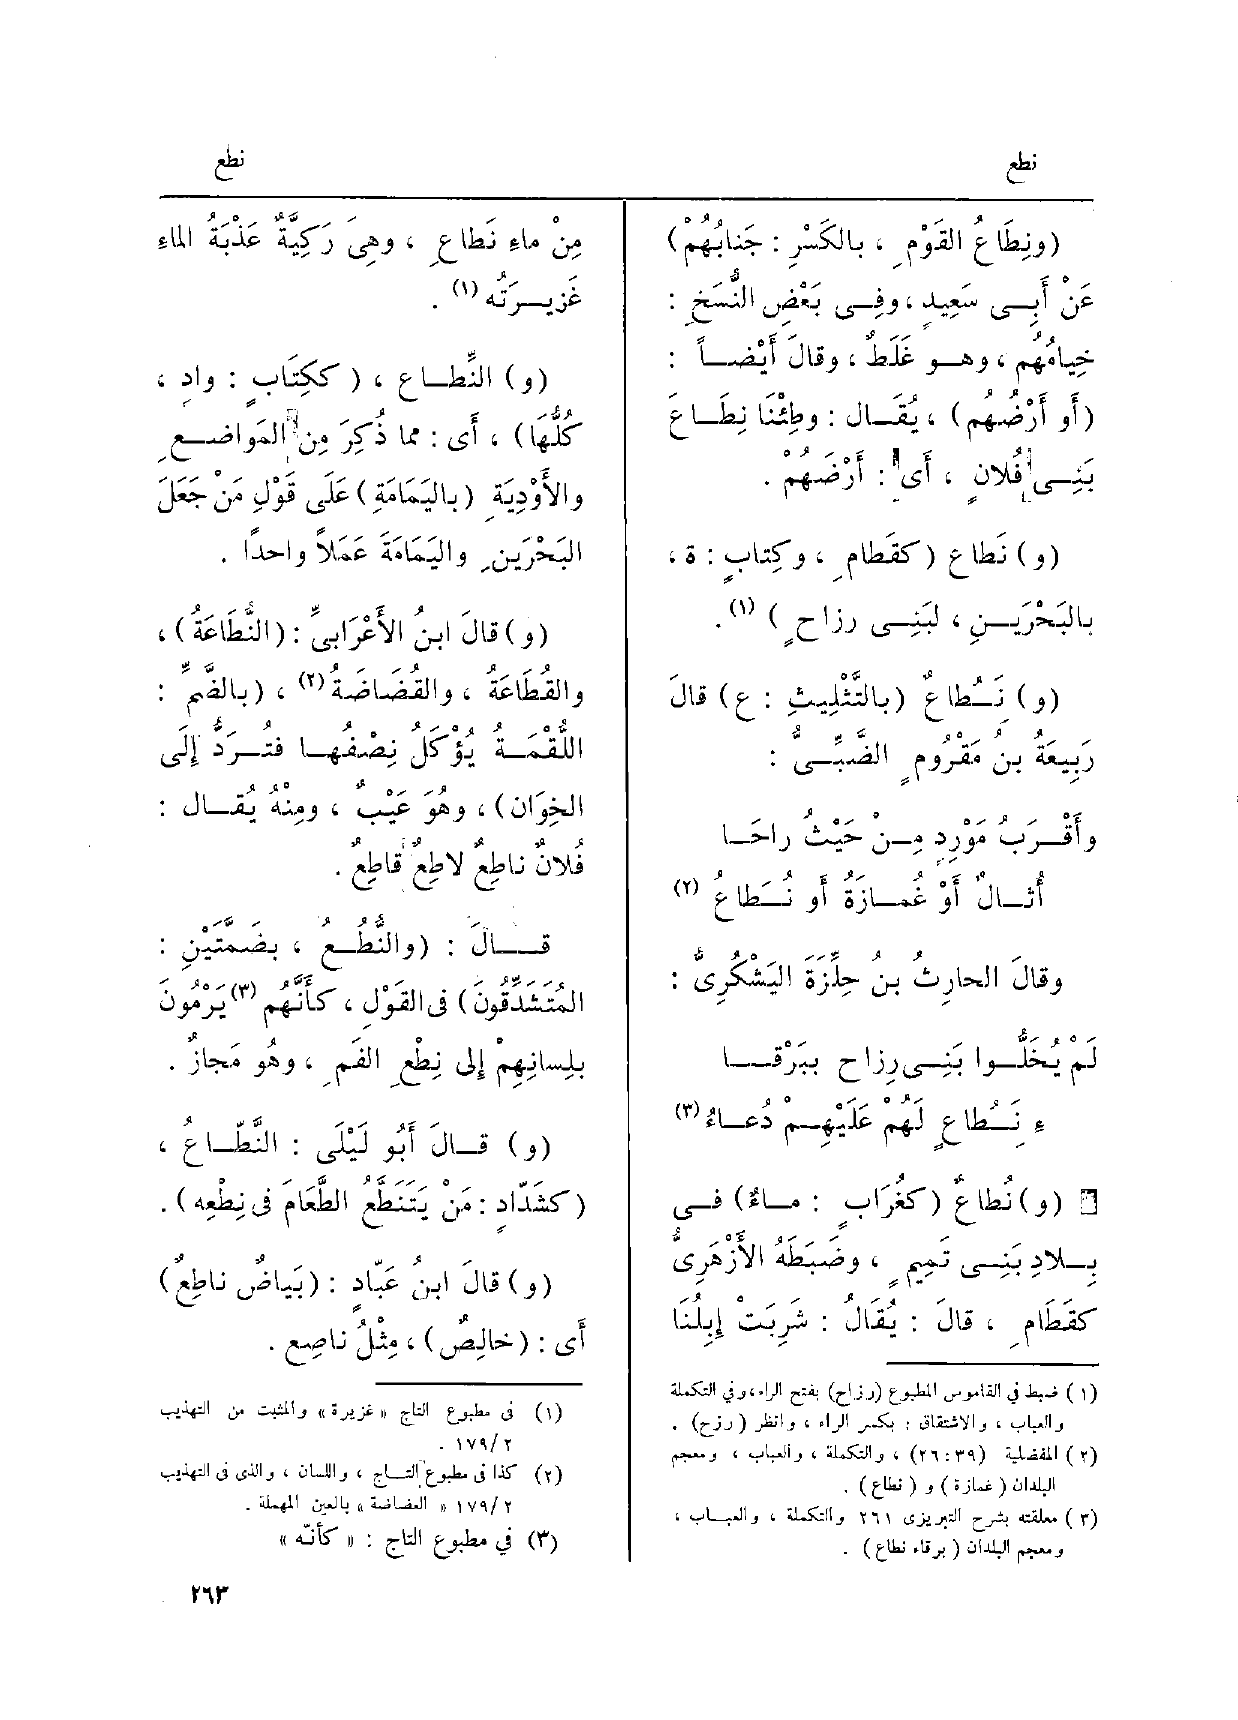 نطع
نطع
(ونِطَاعُ القَوْمِ ، بالكَسْرِ : جَنابُهُمْ)
عَنْ أَبِـى سَعِيدٍ ، وفِـى بَعْضِ النُّسَخِ :
خِيامُهُم ، وهـو غَلَطٌ ، وقالَ أَيْضـاً :
(أَو أَرْضُهُم) ، يُقَـال : وطِئْنَا نِطَـاعَ
بَنِـى فُلانٍ ، أَى : أَرْضَهُمْ .
(و) نَطاع (كقَطامِ ، وكِتابٍ : ة ،
بالبَحْرَيـنِ ، لبَنِـى رزاحٍ ) (١) .
(و) نَُِـطاعٌ (بالتَّثْلِيثِ : ع) قالَ
رَبِيعَةُ بنُ مَقْرُومٍ الضَّبِّـىُّ :
وأَقْـرَبُ مَوْرِدٍ مِـنْ حَيْثُ راحَـا
أُثـالٌ أَوْ غُمـازَةُ أَو نُـَطاعُ (٢)
وقالَ الحارِثُ بنُ حِلِّزَةَ اليَشْكُرِىُّ :
لَمْ يُخَلُّـوا بَنِـى رِزاح بِبَرْقـا
ءِ نَُِـطاعٍ لَهُمْ عَلَيْهِـمْ دُعـاءُ (٣)
(و) نُطاعٌ (كغُرَابٍ : مـاءٌ) فـى
بِـلادِ بَنِـى تَمِيمٍ ، وضَبَطَهُ الأَزْهَرِىُّ
كقَطَامِ ، قالَ : يُقَالُ : شَرِبَتْ إِبِلُنَا
(١) ضبط في القاموس المطبوع (رزاح) بفتح الراء، وفي التكملة
والعباب ، والاشتقاق : بكسر الراء ، وانظر (رزح) .
(٢) المفضلية (٣٩ : ٢٦) ، والتكملة ، والعباب ، ومعجم
البلدان (غمازة) و (نطاع) .
(٣) معلقته بشرح التبريزى ٢٦١ والتكملة ، والعبـاب ،
ومعجم البلدان (برقاء نطاع) .
مِنْ ماءِ نَطاعِ ، وهِىَ رَكِيَّةٌ عَذْبَةُ الماءِ
غَزِيـرَتُه (١) .
(و) النِّطـاع ، ( ككِتَابٍ : وادٍ ،
كُلُّهَا) ، أَى : مما ذُكِرَ مِن المَواضـعِ
والأَوْدِيَةِ (باليَمَامَةِ) عَلَى قَوْلِ مَنْ جَعَلَ
البَحْرَينِ واليَمَامَةَ عَمَلاً واحدًا .
(و) قالَ ابنُ الأَعْرَابىِّ : (النُّطَاعَةُ) ،
والقُطَاعَةُ ، والقُضَاضَةُ (٢) ، (بالضَّمِّ :
اللُّقْمَـةُ يُؤْكَلُ نِصْفُهـا فتُـرَدُّ إِلَى
الخِوَان) ، وهُوَ عَيْبٌ ، ومِنْهُ يُقـال :
فُلانٌ ناطِعٌ لاطِعٌ قاطِعٌ .
قــالَ : (والنُّطُـع ، بضَمَّتَيْنِ :
المُتَشَدِّقُونَ) فى القَوْلِ ، كأَنَّهُم (٣) يَرْمُونَ
بلِسانِهِمْ إِلى نِطْعِ الفَمِ ، وهُو مَجازٌ .
(و) قـالَ أَبُو لَيْلَى : النَّطَّـاعُ ،
(كشَدّادٍ : مَنْ يَتَنَطَّعُ الطَّعَامَ فى نِطْعِه) .
(و) قالَ ابنُ عَبّادٍ : (بَياضٌ ناطِعٌ)
أَى : (خالِصٌ) ، مِثْلُ ناصِع .
(١) فى مطبوع التاج « غزيرة » والمثبت من التهذيب
٢ / ١٧٩ .
(٢) كذا فى مطبوع التـاج ، واللسان ، والذى فى التهذيب
٢ / ١٧٩ « العضاضة » بالعين المهملة .
(٣) في مطبوع التاج : « كأنّه »
٢٦٣